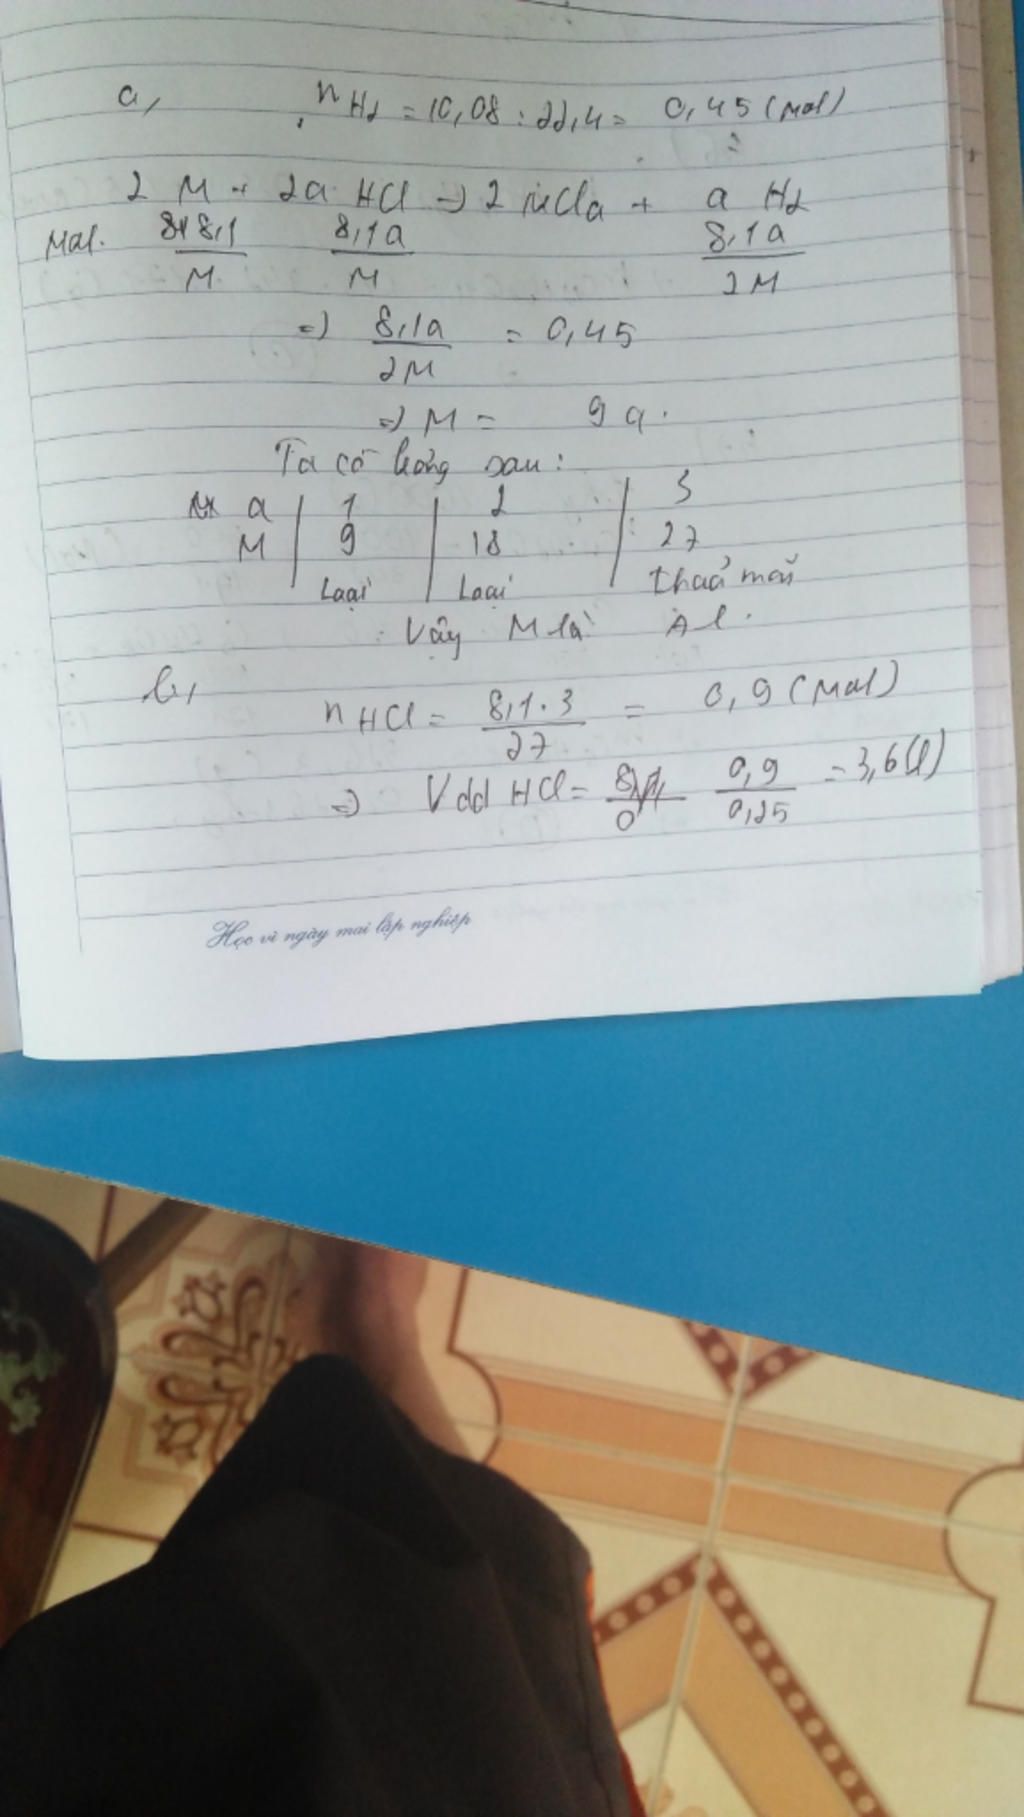 a, nH2 = 10,08 : 22,4 = 0,45 (mol)
2 M + 2a HCl → 2 MCla + a H2
Mol. 8,1/M 8,1a/M 8,1a/2M
=> 8,1a/2M = 0,45
=> M = 9a.
Ta có bảng sau:
a | 1 | 2 | 3
M | 9 | 18 | 27
Loại | Loại | thoả mãn
Vậy M là Al.
b, nHCl = 8,1.3/27 = 0,9 (mol)
=> Vdd HCl = 0,9/0,25 = 3,6(l)
Học vì ngày mai lập nghiệp